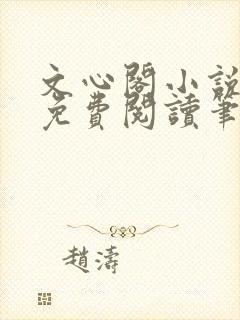 文心閣小說
免費閱讀筆
趙濤